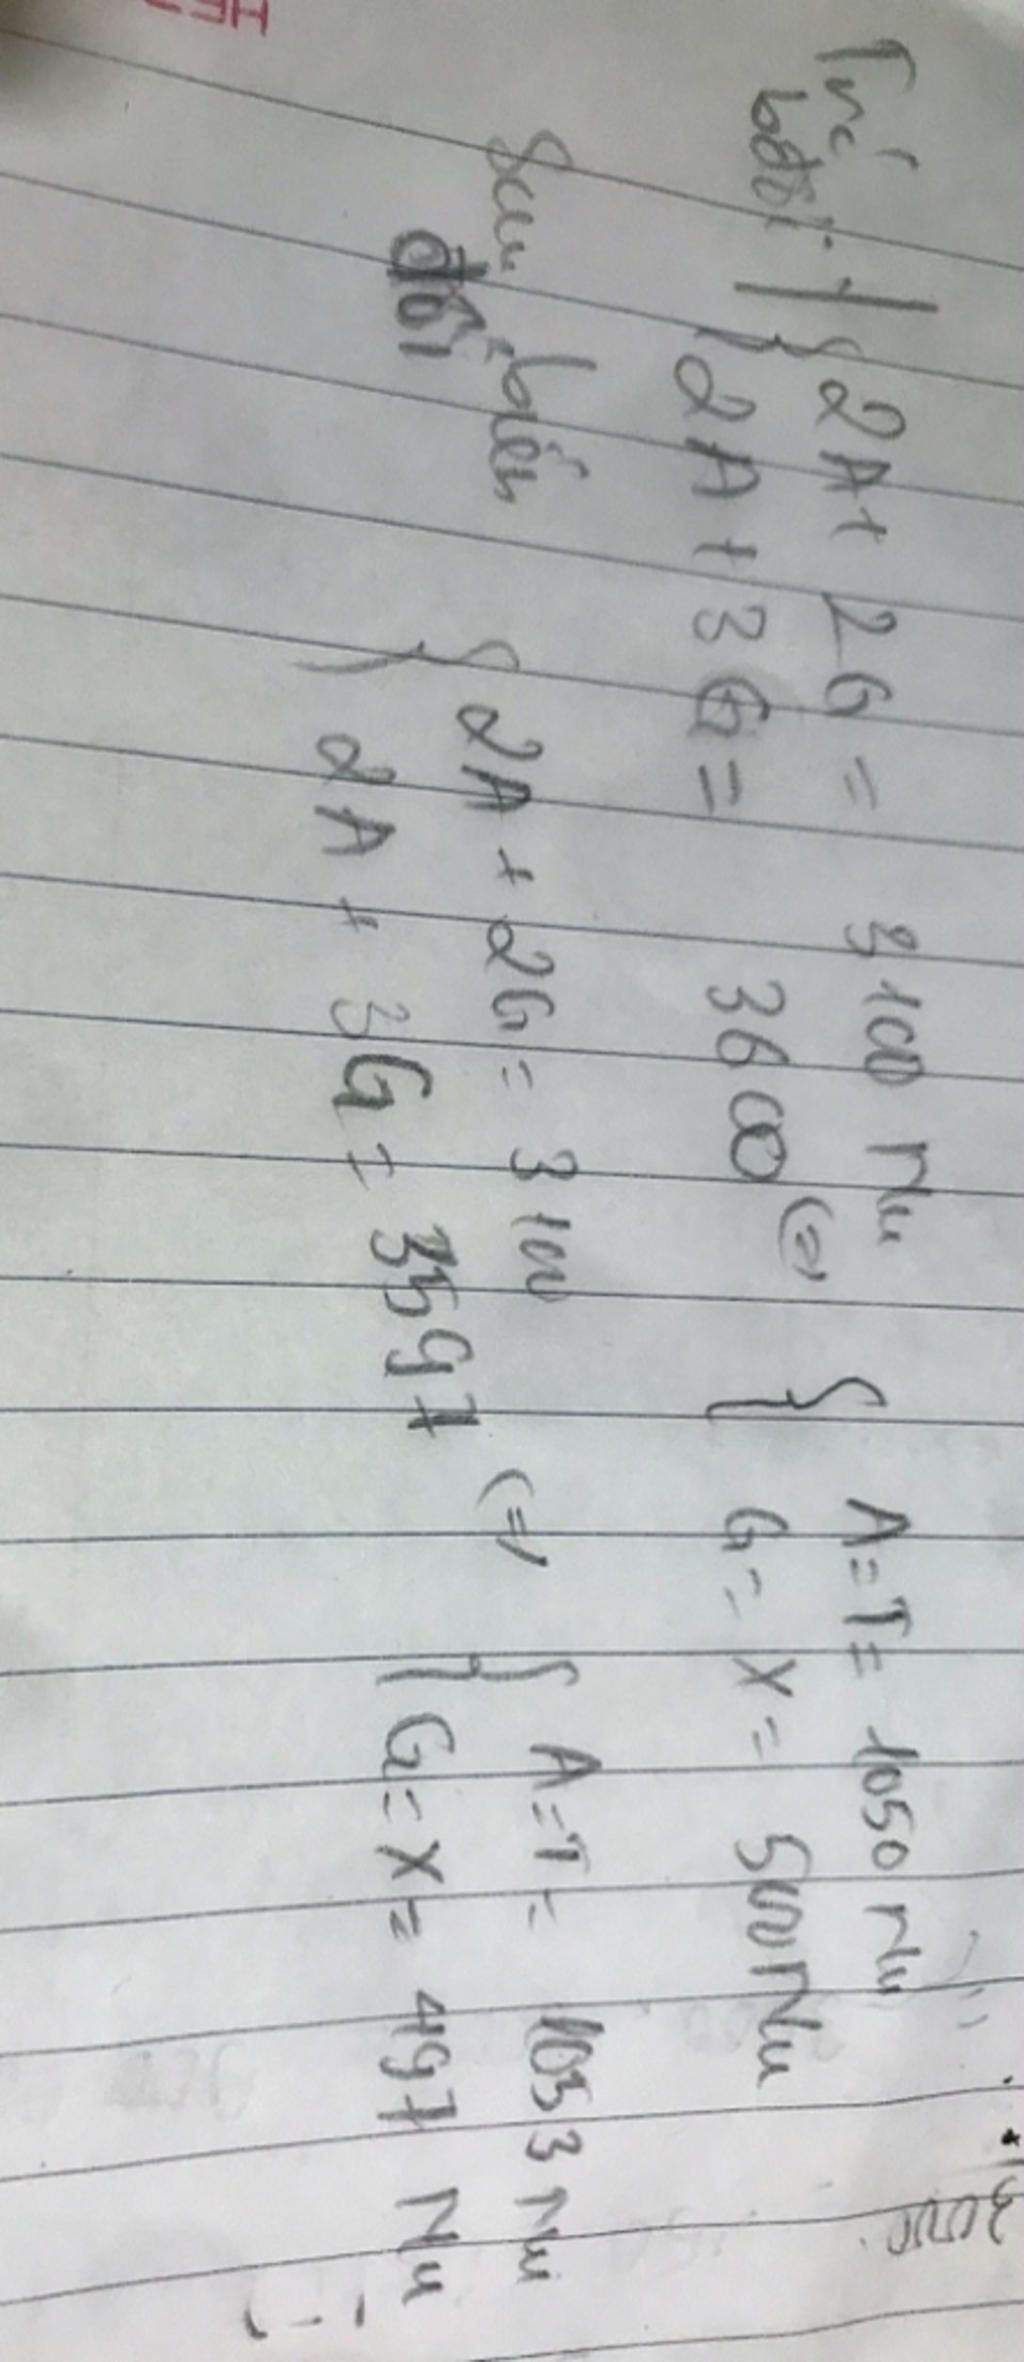 Trc
bđổi
{ 2A + 2G = 3100 Nu
{ 2A + 3G = 3600 (=) { A=T= 1050 Nu
G = X = 500 Nu
Sau biến
đổi
{ 2A + 2G = 3100
{ 2A + 3G = 3597 (=) { A=T= 1053 Nu
{ G = X = 497 Nu